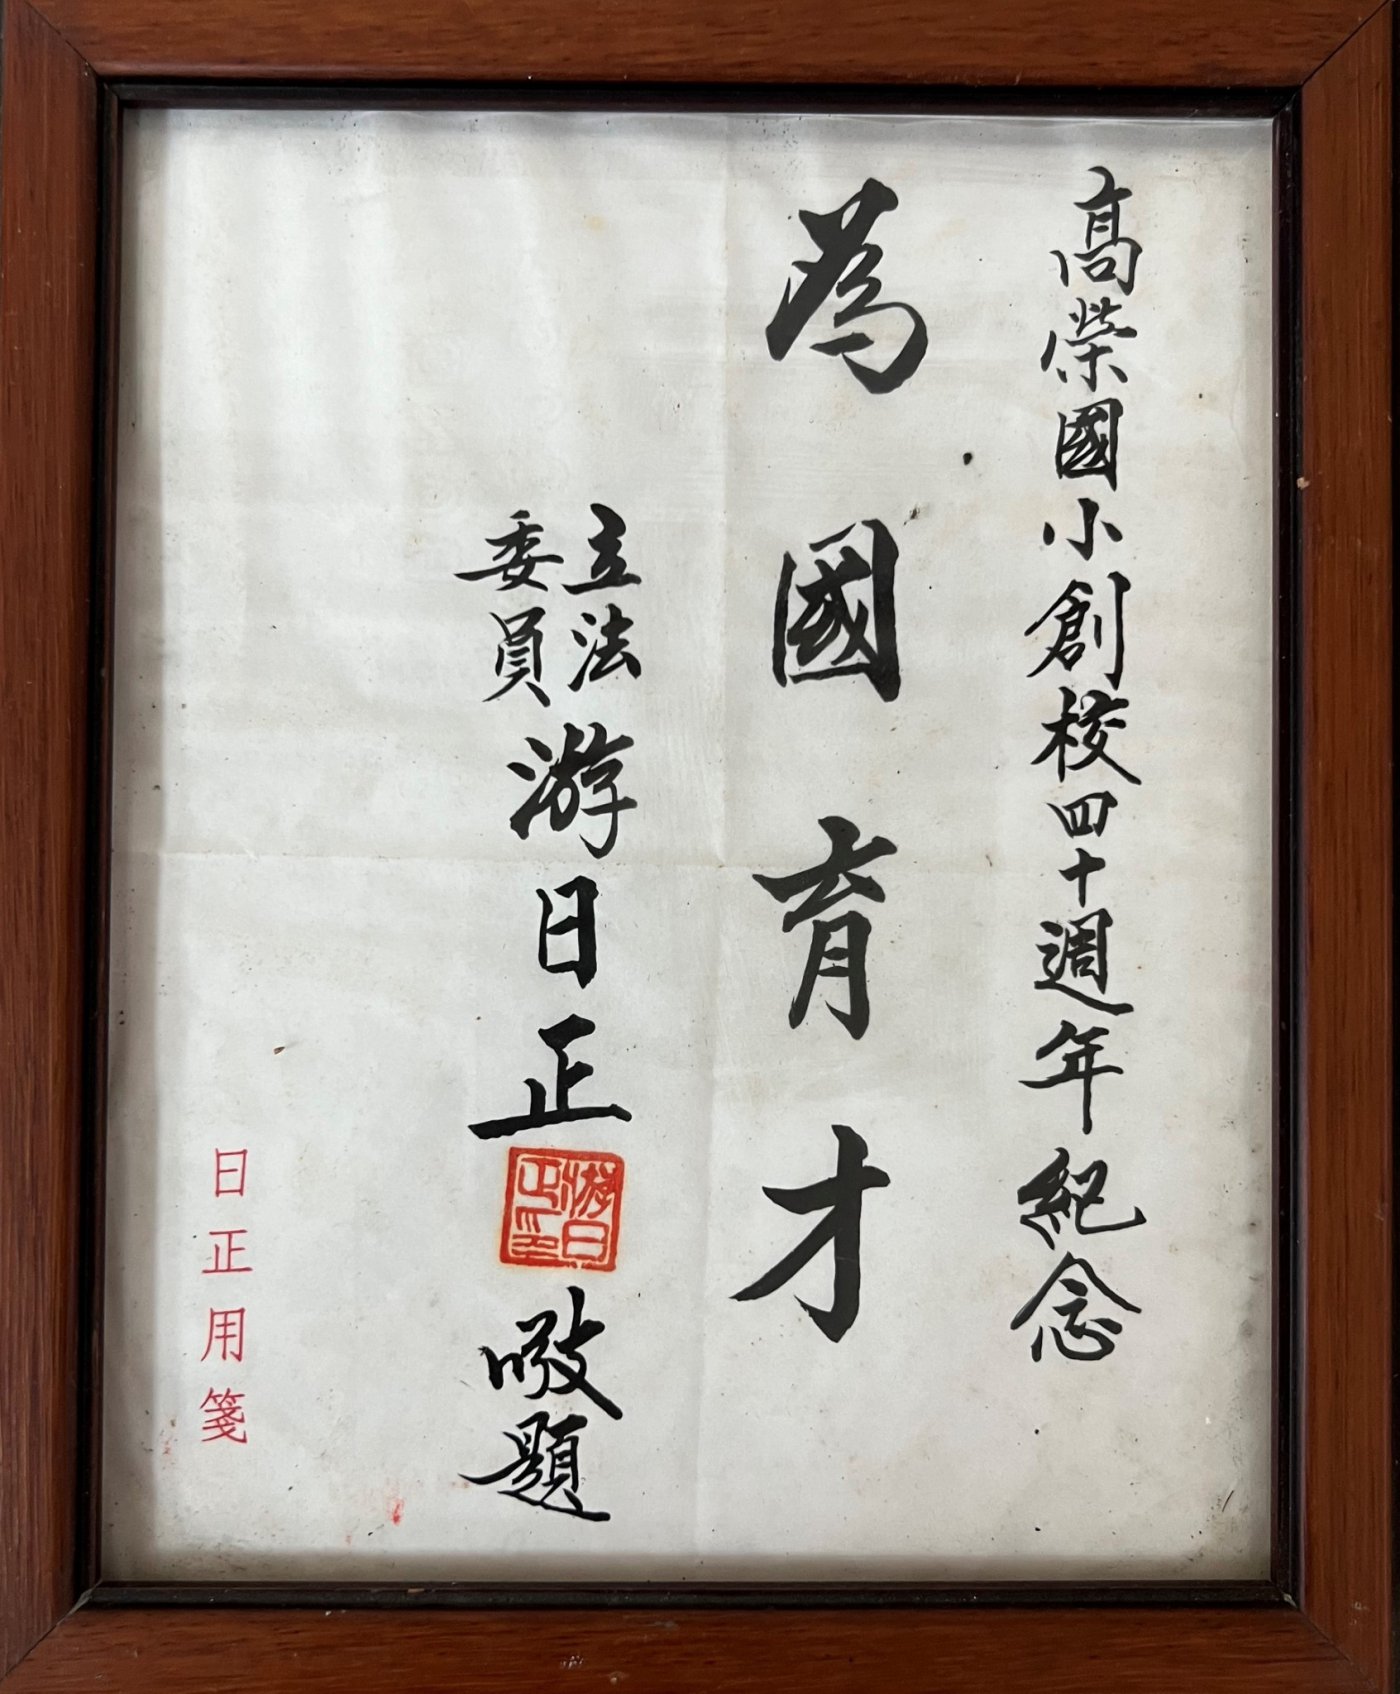 高榮國小創校四十週年紀念
為國育才
立法委員 游日正 敬題
游日正印
日正用箋